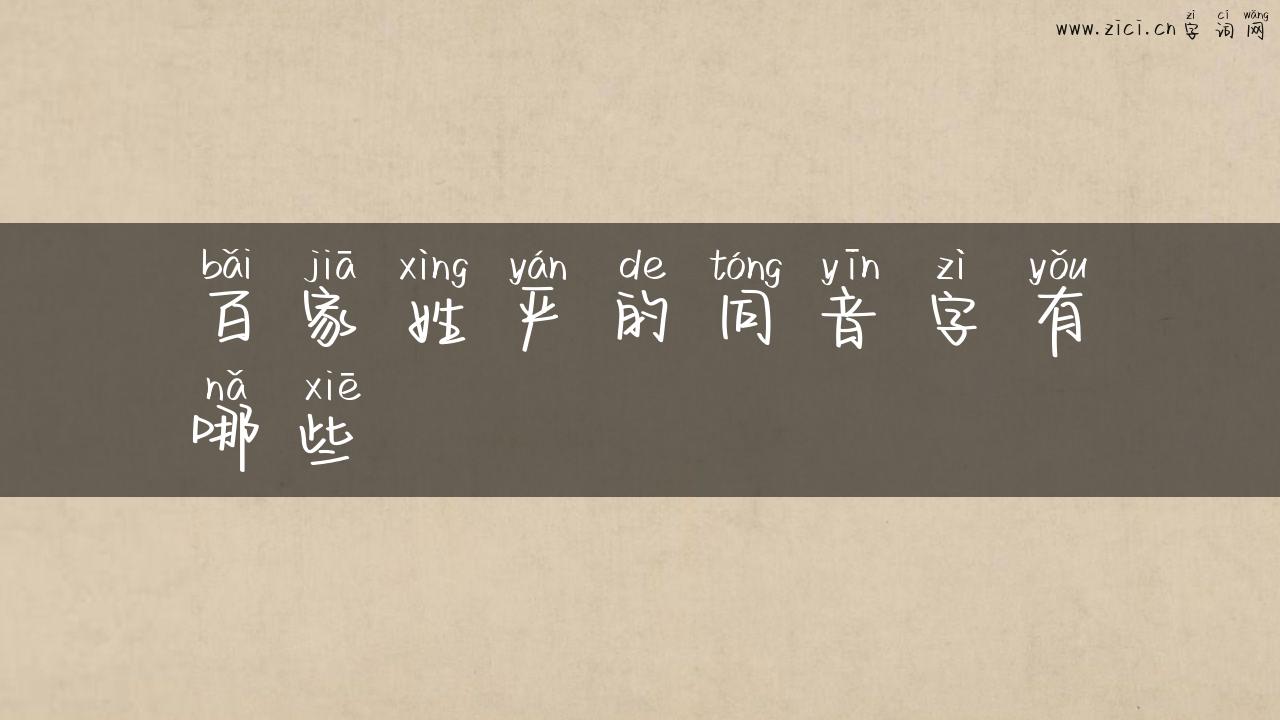 zì cí wǎng
www.zici.cn 字 词 网
bǎi jiā xìng yán de tóng yīn zì yǒu
百 家 姓 严 的 同 音 字 有
nǎ xiē
哪 些